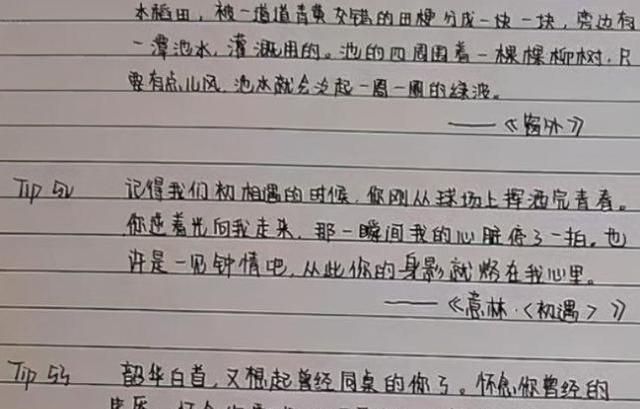 水稻田,被一道道青黄交错的田埂分成一块一块,旁边有
一潭池水,灌溉用的。池的四周围着一棵棵柳树,只
要有点儿风,池水就会泛起一圈一圈的绿波。
——《窗外》
Tip 52 记得我们初相遇的时候,你刚从球场上挥洒完青春。
你逆着光向我走来,那一瞬间我的心脏停了一拍。也
许是一见钟情吧,从此你的身影就烙在我心里。
——《意林·<初遇>》
Tip 53 韶华白首,又想起曾经同桌的你了。怀念你曾经的